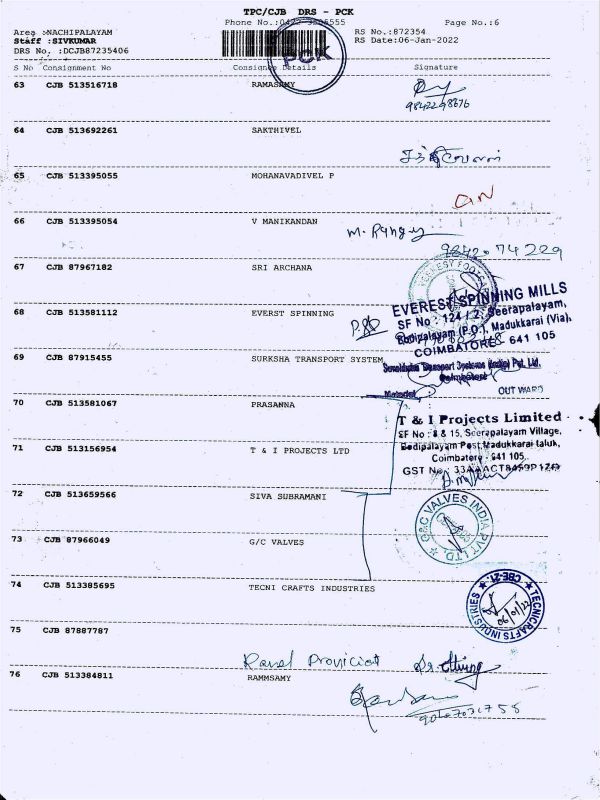 TPC/CJB DRS - PCK
Phone No.:0422 Page No.:6
Area :NACHIPALAYAM RS No.:872354
Staff :SIVKUMAR RS Date:06-Jan-2022
DRS No. :DCJB87235406
PCK
S No Consignment No Consignee Details Signature
63 CJB 513516718 RAMASAMY
9842298876
64 CJB 513692261 SAKTHIVEL
சக்திவேல்
65 CJB 513395055 MOHANAVADIVEL P
66 CJB 513395054 V MANIKANDAN
M. Rangy
98420 74229
67 CJB 87967182 SRI ARCHANA
68 CJB 513581112 EVERST SPINNING
EVEREST SPINNING MILLS
SF No : 124 / 2, Seerapalayam,
Bodipalayam (P.O.), Madukkarai (Via),
COIMBATORE - 641 105
69 CJB 87915455 SURKSHA TRANSPORT SYSTEM
Transport Systems (India) Pvt. Ltd.
Coimbatore
OUT WARD
70 CJB 513581067 PRASANNA
T & I Projects Limited
SF No : 8 & 15, Seerapalayam Village,
Bodipalayam Post, Madukkarai taluk,
Coimbatore - 641 105.
GST No. 33AAACT8459P1Z0
71 CJB 513156954 T & I PROJECTS LTD
72 CJB 513659566 SIVA SUBRAMANI
73 CJB 87966049 G/C VALVES
G&C VALVES INDIA PVT LTD.
74 CJB 513385695 TECNI CRAFTS INDUSTRIES
TECNICRAFTS INDUSTRIES CBE-21
06/01/22
75 CJB 87887787
76 CJB 513384811 RAMMSAMY